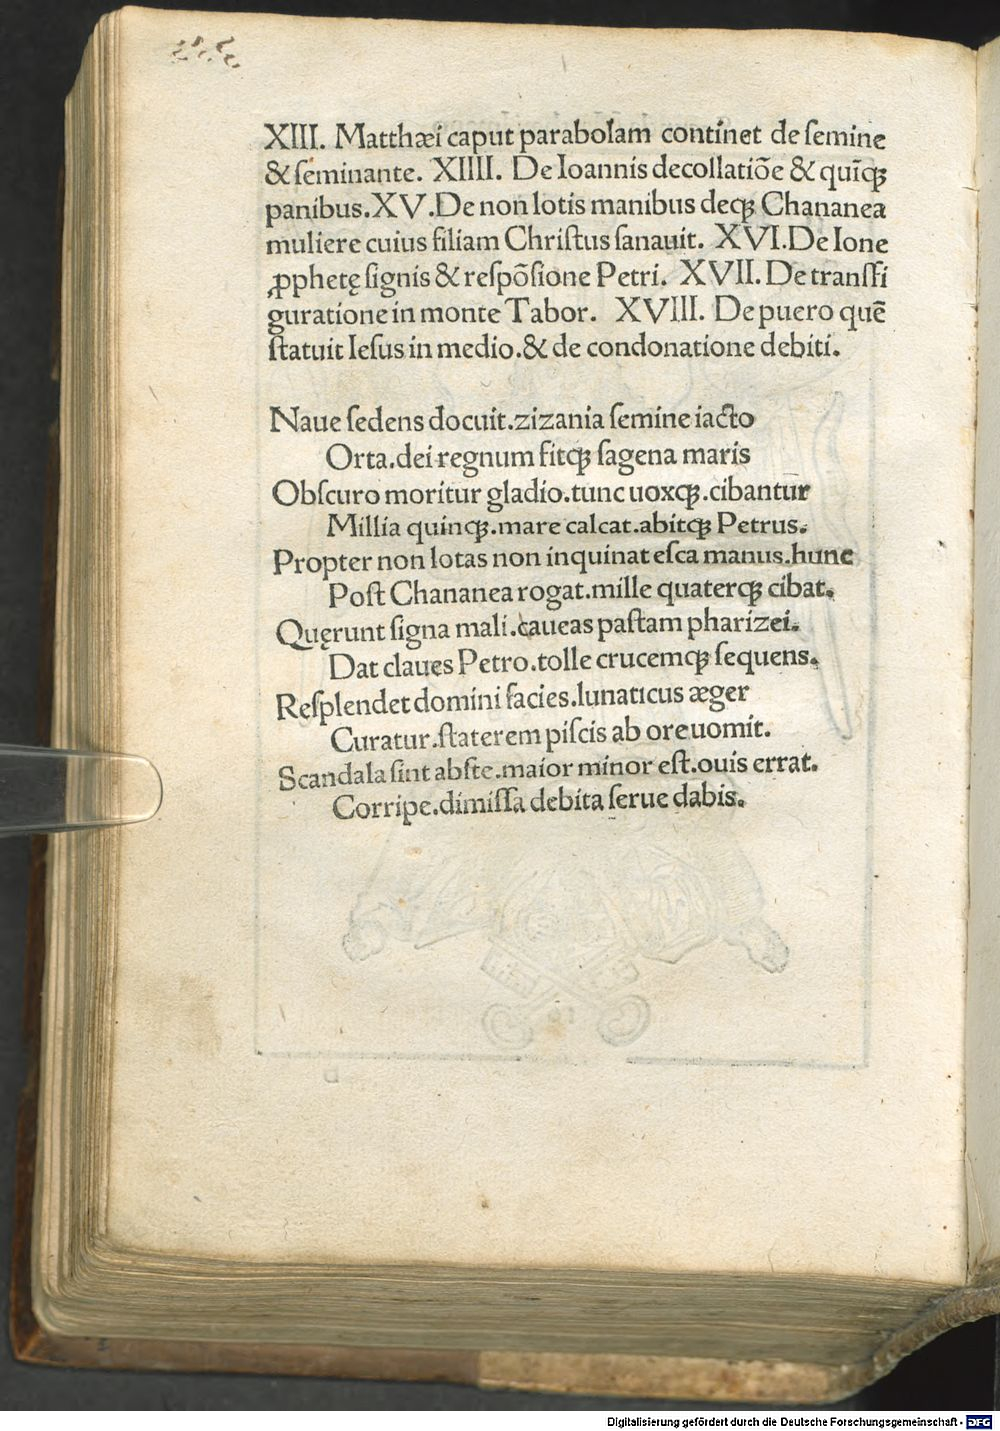 XIII. Matthæi caput parabolam continet de ſemine
& ſeminante. XIIII. De Ioannis decollatiõe & quĩqꝫ
panibus.XV.De non lotis manibus deqꝫ Chananea
muliere cuius filiam Chriſtus ſanauit. XVI.De Ione
ꝓphetę ſignis & reſpõſione Petri. XVII. De tranſfi
guratione in monte Tabor. XVIII. De puero quẽ
ſtatuit Ieſus in medio.& de condonatione debiti.
Naue ſedens docuit.zizania ſemine iacto
Orta.dei regnum fitqꝫ ſagena maris
Obſcuro moritur gladio.tunc uoxqꝫ.cibantur
Millia quinqꝫ.mare calcat.abitqꝫ Petrus.
Propter non lotas non inquinat eſca manus.hunc
Poſt Chananea rogat.mille quaterqꝫ cibat.
Quęrunt ſigna mali.caueas paſtam pharizei.
Dat claues Petro.tolle crucemqꝫ ſequens.
Reſplendet domini facies.lunaticus æger
Curatur.ſtaterem piſcis ab ore uomit.
Scandala ſint abſte.maior minor eſt.ouis errat.
Corripe.dimiſſa debita ſerue dabis.
Digitalisierung gefördert durch die Deutsche Forschungsgemeinschaft - DFG